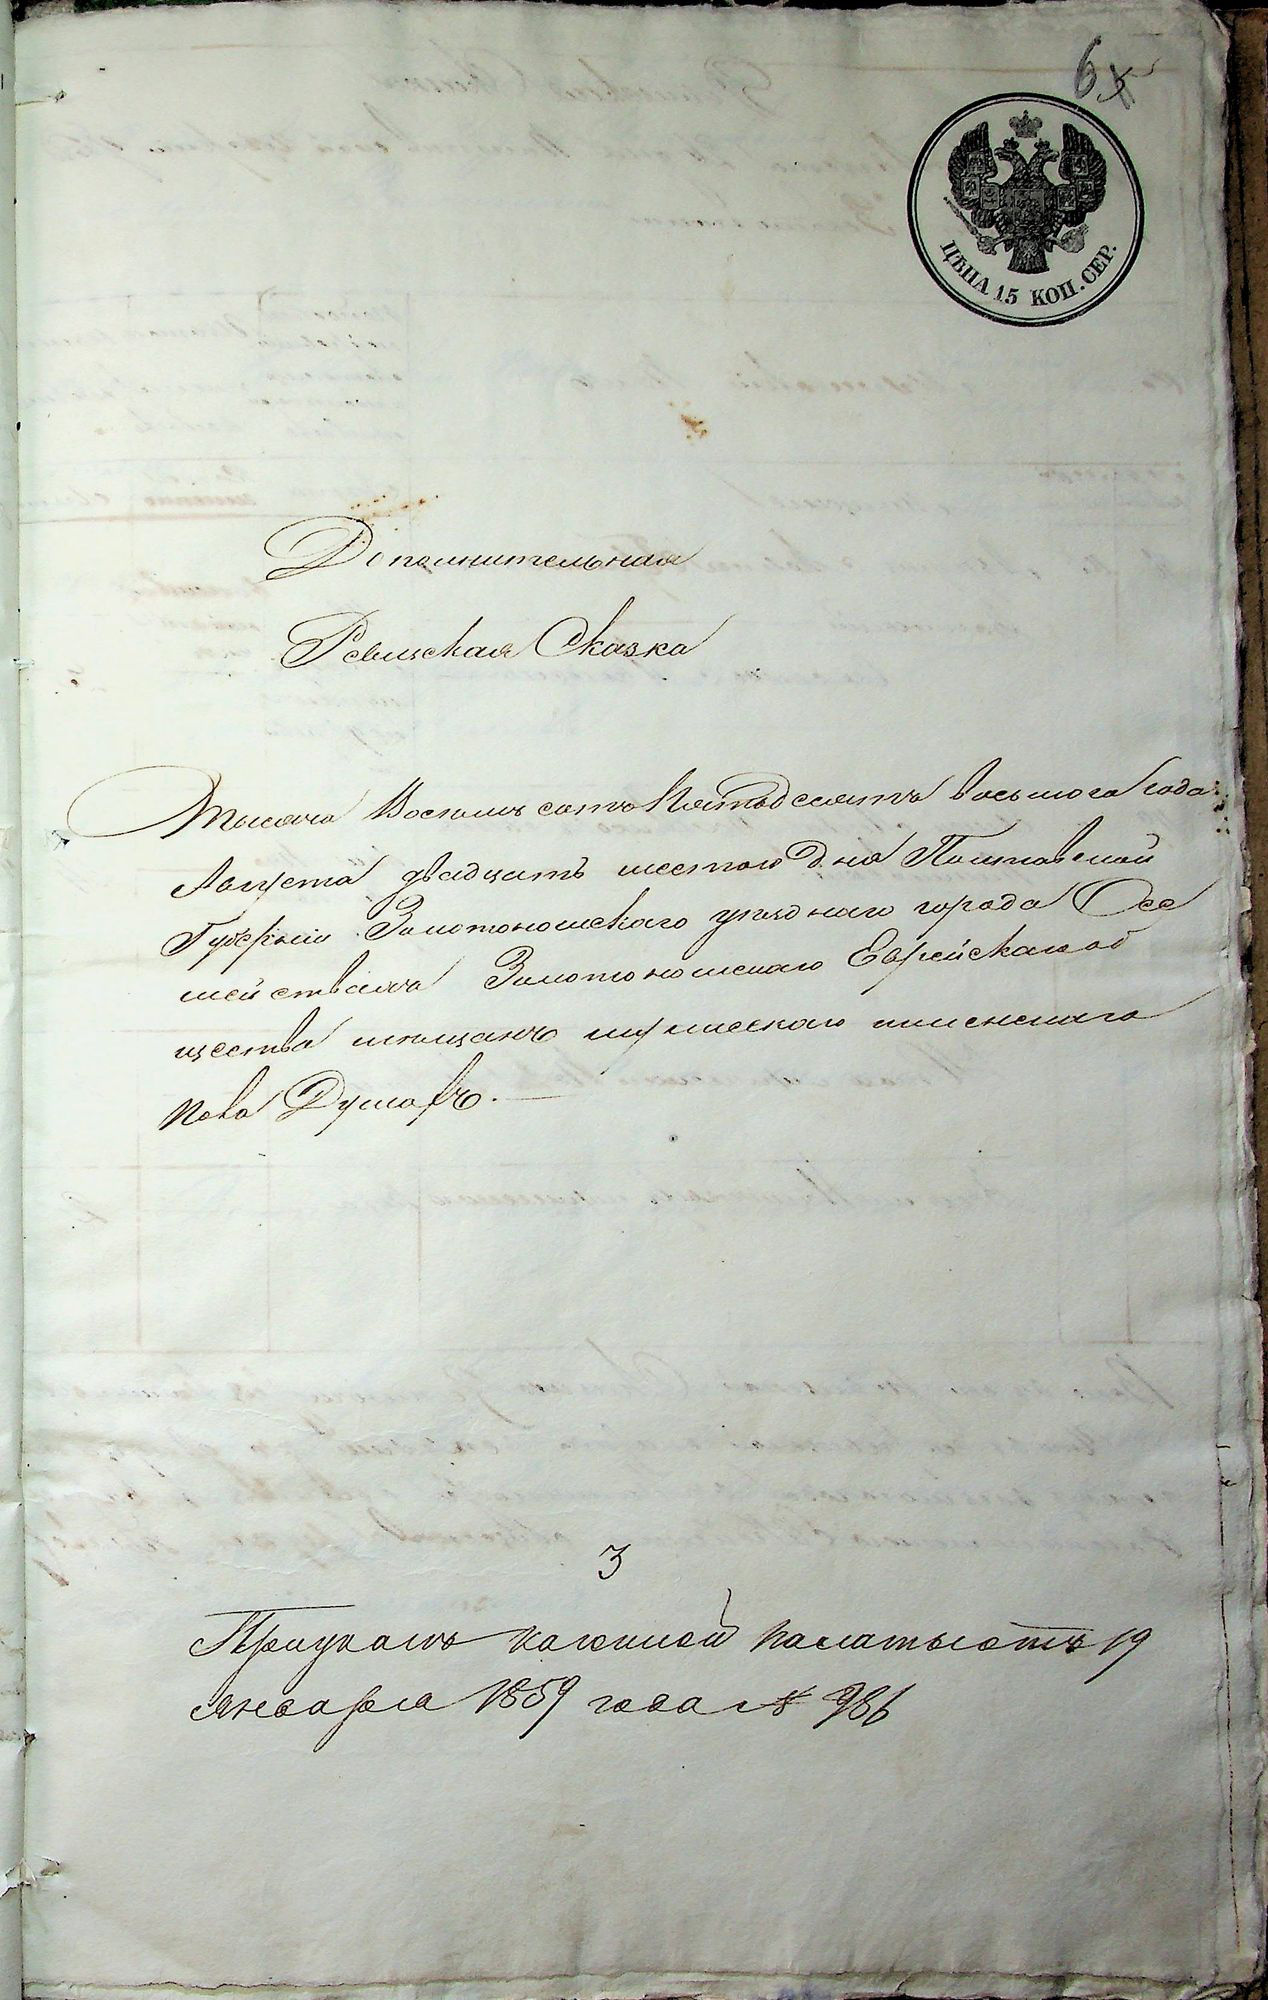 6
ЦѢНА 15 КОП. СЕР.
Дополнительная
Ревизская Сказка
Тысяча Восемь сотъ Пятьдесятъ восьмого года
Августа двадцать шестого Дня Полтавской
Губерніи Золотоношскаго уезднаго города О се
мействахъ Золотоношскаго Еврейскаго об
щества мещанъ
Душахъ.
3
При указе казенной палаты отъ 19
Января 1859 года № 986